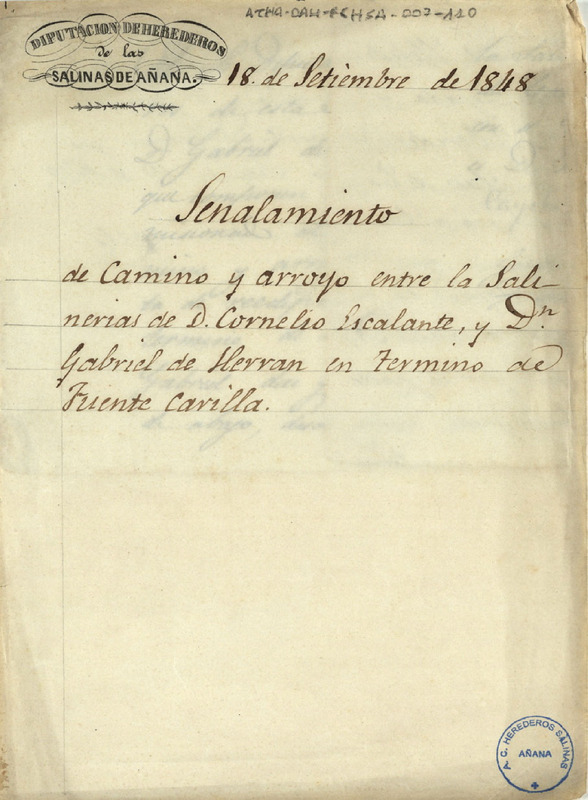 ATHA-DAH-FCHSA-007-110
DIPUTACION DE HEREDEROS
de las
SALINAS DE AÑANA.
18. de Setiembre de 1848
Senalamiento
de Camino y arroyo entre la Sali-
nerias de D. Cornelio Escalante, y Dn.
Gabriel de Herran en Termino de
Fuente Carilla.
A. C. HEREDEROS SALINAS
AÑANA